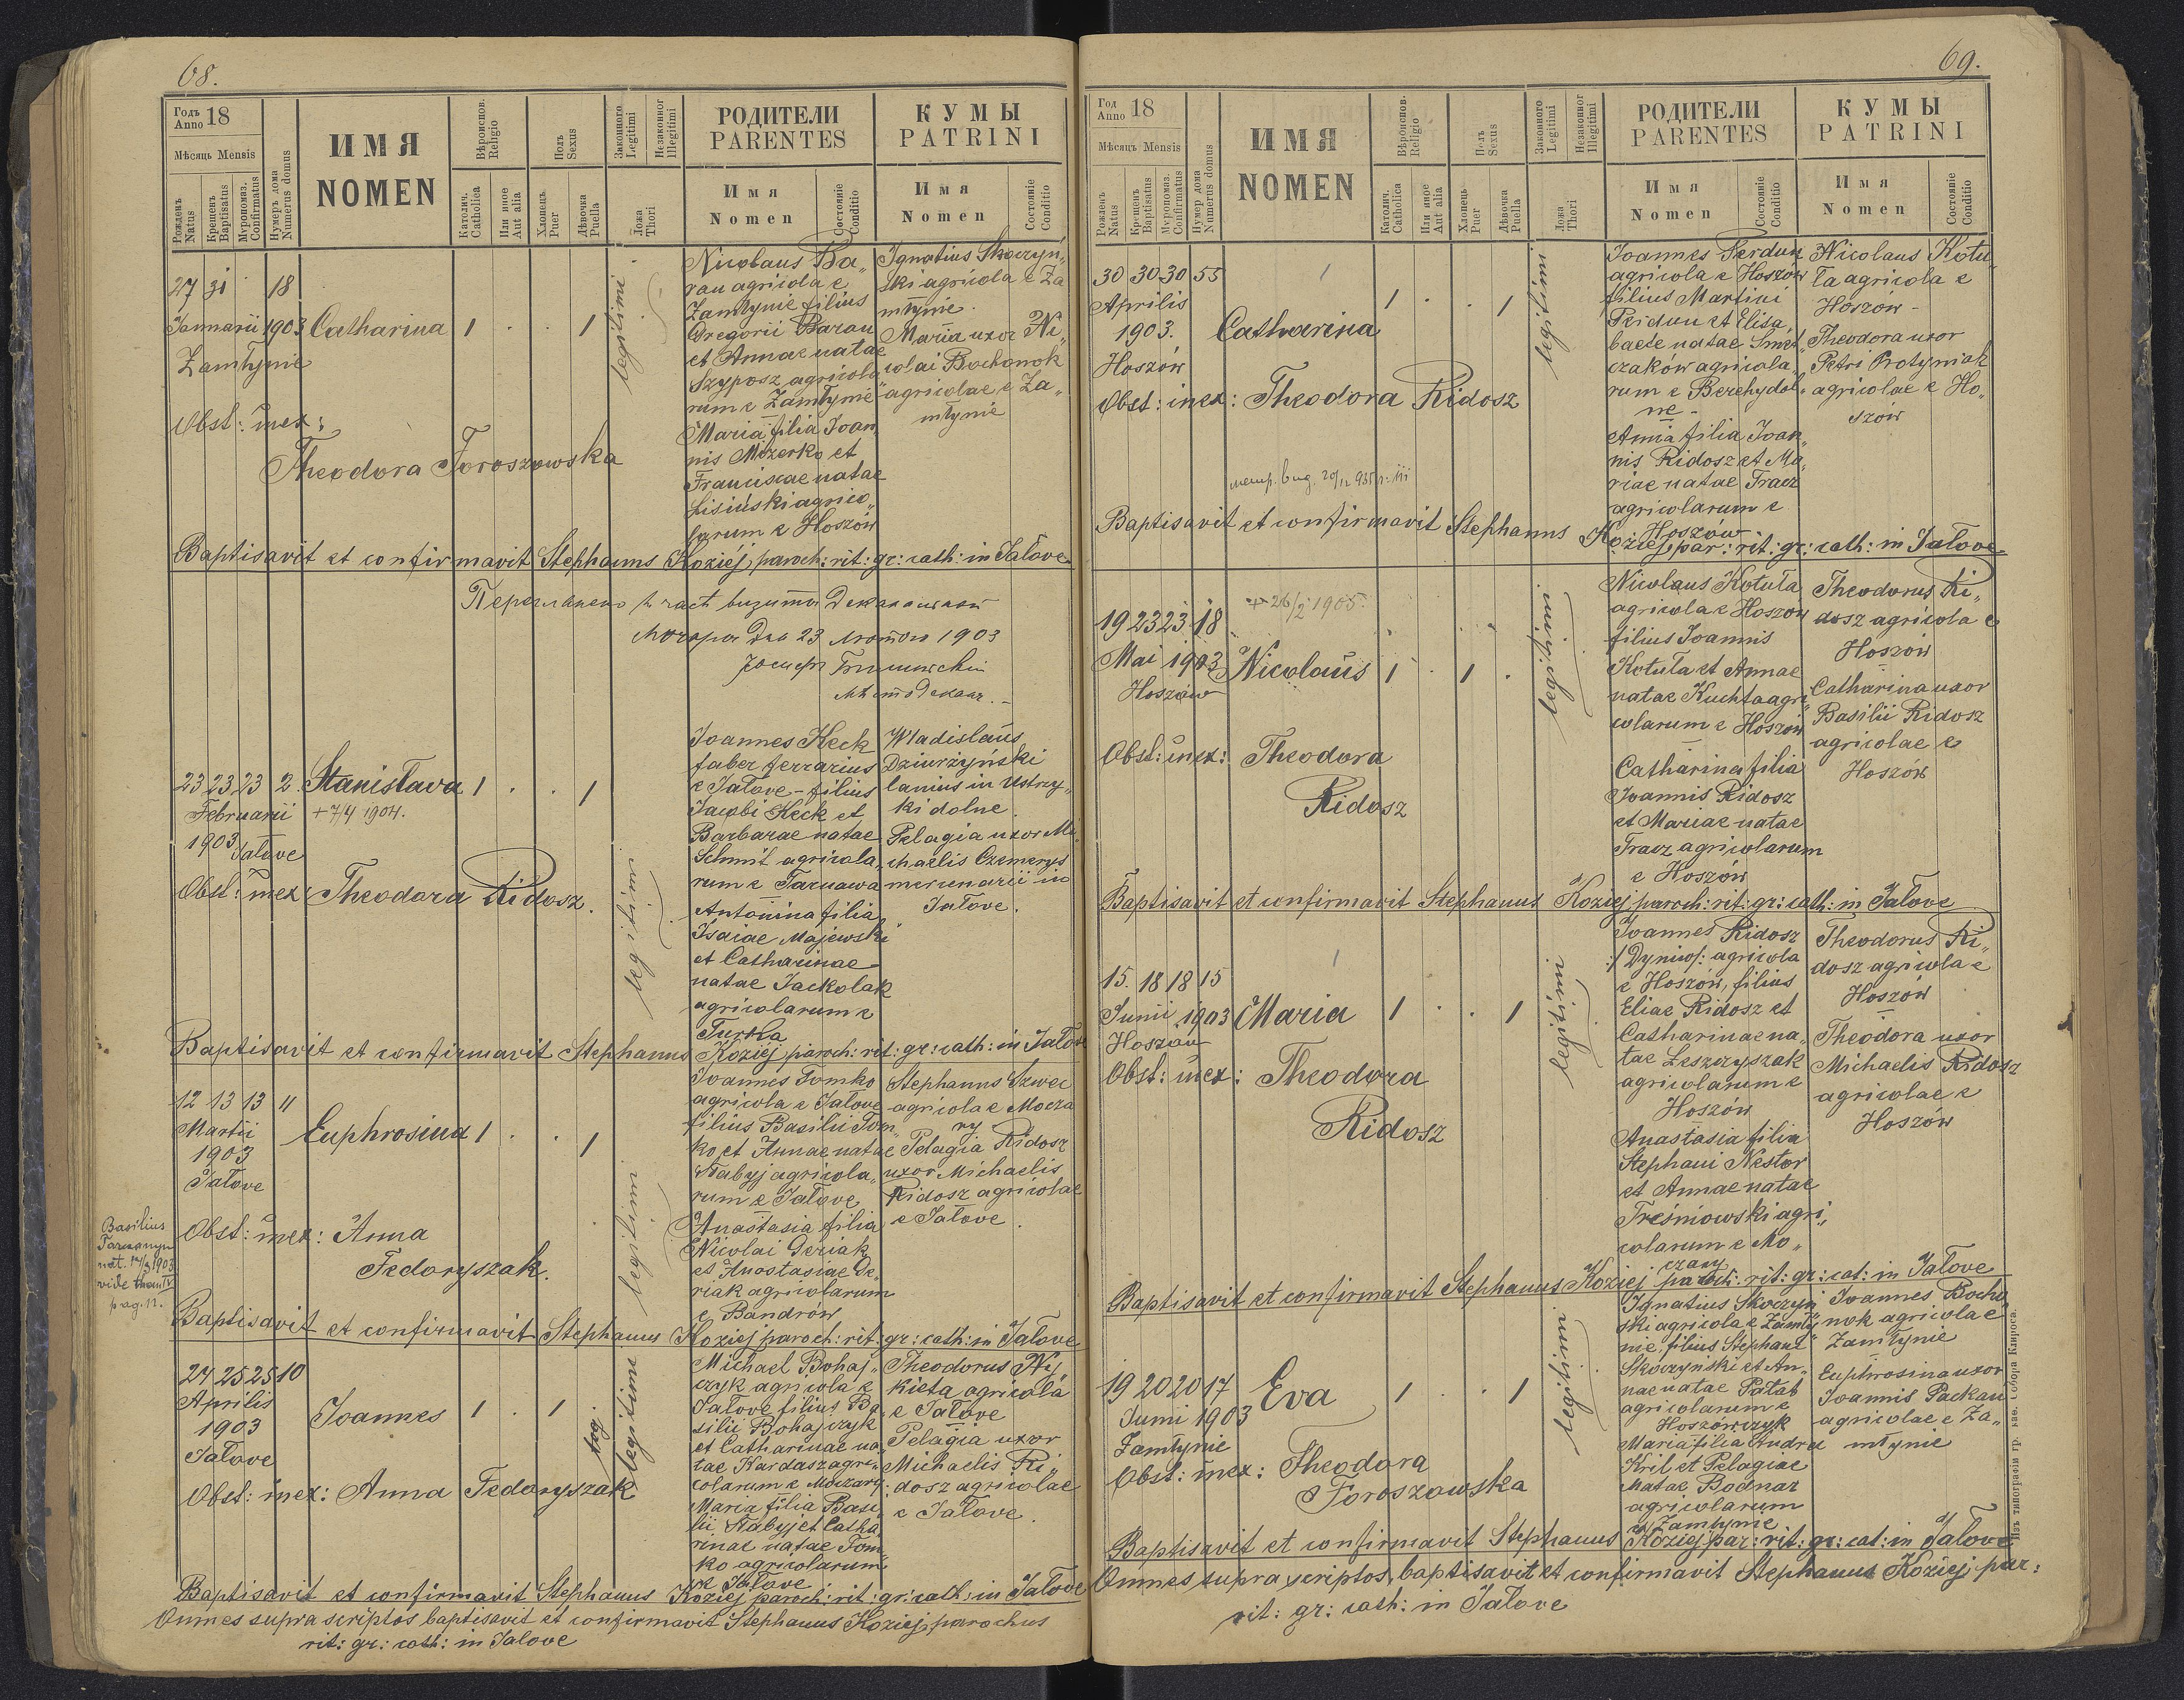 68.
Годъ
Anno 18
Мѣсяць Mensis
Рожденъ
Natus
Крещенъ
Baptisatus
Муропомаз.
Confirmatus
Нумеръ дома
Numerus domus
ИМЯ
NOMEN
Вѣроиспов.
Religio
Католич.
Catholica
Или иное
Aut alia
Полъ
Sexus
Хлопецъ
Puer
Дѣвочка
Puella
Законного
Legitimi
Незаконног
Illegitimi
Ложа
Thori
РОДИТЕЛИ
PARENTES
Имя
Nomen
Состояніе
Conditio
КУМЫ
PATRINI
Имя
Nomen
Состояніе
Conditio
27 31 18
Januarii 1903 Catharina 1 . . 1
Zamłynie
Obst: inex:
Theodora Toroszowska
legitimi
Nicolaus Ba„
ran agricola e
Zamłynie filius
Gregorii Baran
et Annae natae
Szyposz agricola„
rum e Zamłynie
Maria filia Joan„
nis Mozerko et
Franciscae natae
Lisiński agrico„
larum e Hoszów
Ignatius Skoczyń„
ski agricola e Za
młynie
Maria uxor Ni„
colai Bochonok
agricolae e Za„
młynie
Baptisavit et confirmavit Stephanus Koziej, paroch: rit: gr: cath: in Jałove
23 лютого 1903
23 23 23 2. Stanisłava 1 . . 1
Februarii + 7/4 1904.
1903 Jałove
Obst: inex: Theodora Ridosz.
legitimi
Joannes Heck
faber ferrarius
e Jałove – filius
Jacobi Heck et
Barbarae natae
Schmit agricola„
rum e Tarnawa
Antonina filia
Isaiae Majewski
et Catharinae
natae Jackolak
agricolarum e
Turka
Wladislaus
Dziurzyński
lanius in Ustrzy„
ki dolne.
Pelagia uxor Mi„
chaelis Czemerys
mercenarii in
Jałove.
Baptisavit et confirmavit Stephanus Koziej paroch: rit: gr: cath: in Jałove
12 13 13 11
Martii Euphrosina 1 . . 1
1903
Jałove
Obst: inex: Anna
Fedoryszak.
Basilius
nat. 17/3 1903
vide tom IV
pag. 12.
legitimi
Joannes Tomko
agricola e Jałove
filius Basilii Tom„
ko et Annae natae
Słabyj agricola„
rum e Jałove
Anastasia filia
Nicolai Deriak
et Anastasiae De„
riak agricolarum
e Bandrów
Stephanus Szwec
agricola e Mocza
ry
Pelagia Ridosz
uxor Michaelis
Ridosz agricolae
e Jałove.
Baptisavit et confirmavit Stephanus Koziej paroch: rit: gr: cath: in Jałove
24 25 25 10
Aprilis
1903 Joannes 1 . 1
Jałove
Obst: inex: Anna Fedoryszak
leg. legitimi
Michael Bohaj„
czyk agricola e
Jałove filius Ba„
silii Bohajczyk
et Catharinae na„
tae Kardasz agri„
colarum e Moczary
Maria filia Basi„
lii Słabyj et Catha„
rinae natae Tom„
ko agricolarum
e Jałove
Theodorus Ny„
kieta agricola
e Jałove
Pelagia uxor
Michaelis Ri„
dosz agricolae
e Jałove.
Baptisavit et confirmavit Stephanus Koziej paroch: rit: gr: cath: in Jałove
Omnes supra scriptos baptisavit et confirmavit Stephanus Koziej, parochus
rit: gr: cath: in Jalove
69.
Год
Anno 18
Мѣсяцъ Mensis
Рожденъ
Natus
Крещенъ
Baptisatus
Муропомаз.
Confirmatus
Нумер дома
Numerus domus
ИМЯ
NOMEN
Вѣроиспов.
Religio
Католич.
Catholica
Или иное
Aut alia
Полъ
Sexus
Хлопецъ
Puer
Дѣвочка
Puella
Законного
Legitimi
Незаконног
Illegitimi
Ложа
Thori
РОДИТЕЛИ
PARENTES
Имя
Nomen
Состояніе
Conditio
КУМЫ
PATRINI
Имя
Nomen
Состояніе
Conditio
30 30 30 55
Aprilis 1 . . 1
1903. Catharina
Hoszów
Obst: inex: Theodora Ridosz
метр. выд. 20/12 935
legitimi
Joannes Perdun
agricola e Hoszów
filius Martini
Perdun et Elisa„
baete natae Smet„
czaków agricola„
rum e Berehydol„
ne –
Anna filia Joan„
nis Ridosz et Ma„
riae natae Tracz
agricolarum e
Hoszów
Nicolaus Kotu„
ła agricola e
Hoszow –
Theodora uxor
Petri Protyniak
agricolae e Ho„
szow
Baptisavit et confirmavit Stephanus Koziej, par: rit: gr: cath: in Jałove
+ 26/2 1905.
19 23 23 18
Mai 1903 Nicolaus 1 . 1 .
Hoszów
Obst: inex: Theodora
Ridosz
legitimi
Nicolaus Kotuła
agricola e Hoszow
filius Joannis
Kotuła et Annae
natae Kuchta agri„
colarum e Hoszów
Catharina filia
Joannis Ridosz
et Mariae natae
Tracz agricolarum
e Hoszów
Theodorus Ri„
dosz agricola e
Hoszów
Catharina uxor
Basilii Ridosz
agricolae e
Hoszów
Baptisavit et confirmavit Stephanus Koziej paroch: rit: gr: cath: in Jałove
15. 18 18 15
Junii 1903 Maria 1 . . 1
Hoszów
Obst: inex: Theodora
Ridosz
legitimi
Joannes Ridosz
:/ Dyniw/: agricola
e Hoszów, filius
Eliae Ridosz et
Catharinae na„
tae Leszczyszak
agricolarum e
Hoszów
Anastasia filia
Stephani Nestor
et Annae natae
Treśniowski agri„
colarum e Mo„
czary
Theodorus Ri„
dosz agricola e
Hoszów
Theodora uxor
Michaelis Ridosz
agricolae e
Hoszów
Baptisavit et confirmavit Stephanus Koziej paroch: rit: gr: cat: in Jałove
19 20 20 17 Eva 1 . . 1
Junii 1903
Zamłynie
Obst: inex: Theodora
Toroszowska
legitimi
Ignatius Skoczyń„
ski agricola e Zamły„
nie, filius Stephani
Skoczynski et An„
nae natae Patał
agricolarum e
Hoszówczyk
Maria filia Andrei
Kril et Pelagiae
natae Bodnar
agricolarum
e Zamłynie
Joannes Bocho„
nok agricola e
Zamłynie
Euphrosina uxor
Joannis Packan
agricolae e Za„
młynie
Baptisavit et confirmavit Stephanus Koziej par: rit: gr: cat: in Jałove
Omnes supra scriptos baptisavit et confirmavit Stephanus Koziej par:
rit: gr: cath: in Jałove
Изъ типографіи гр. кае. Собора Клироса.